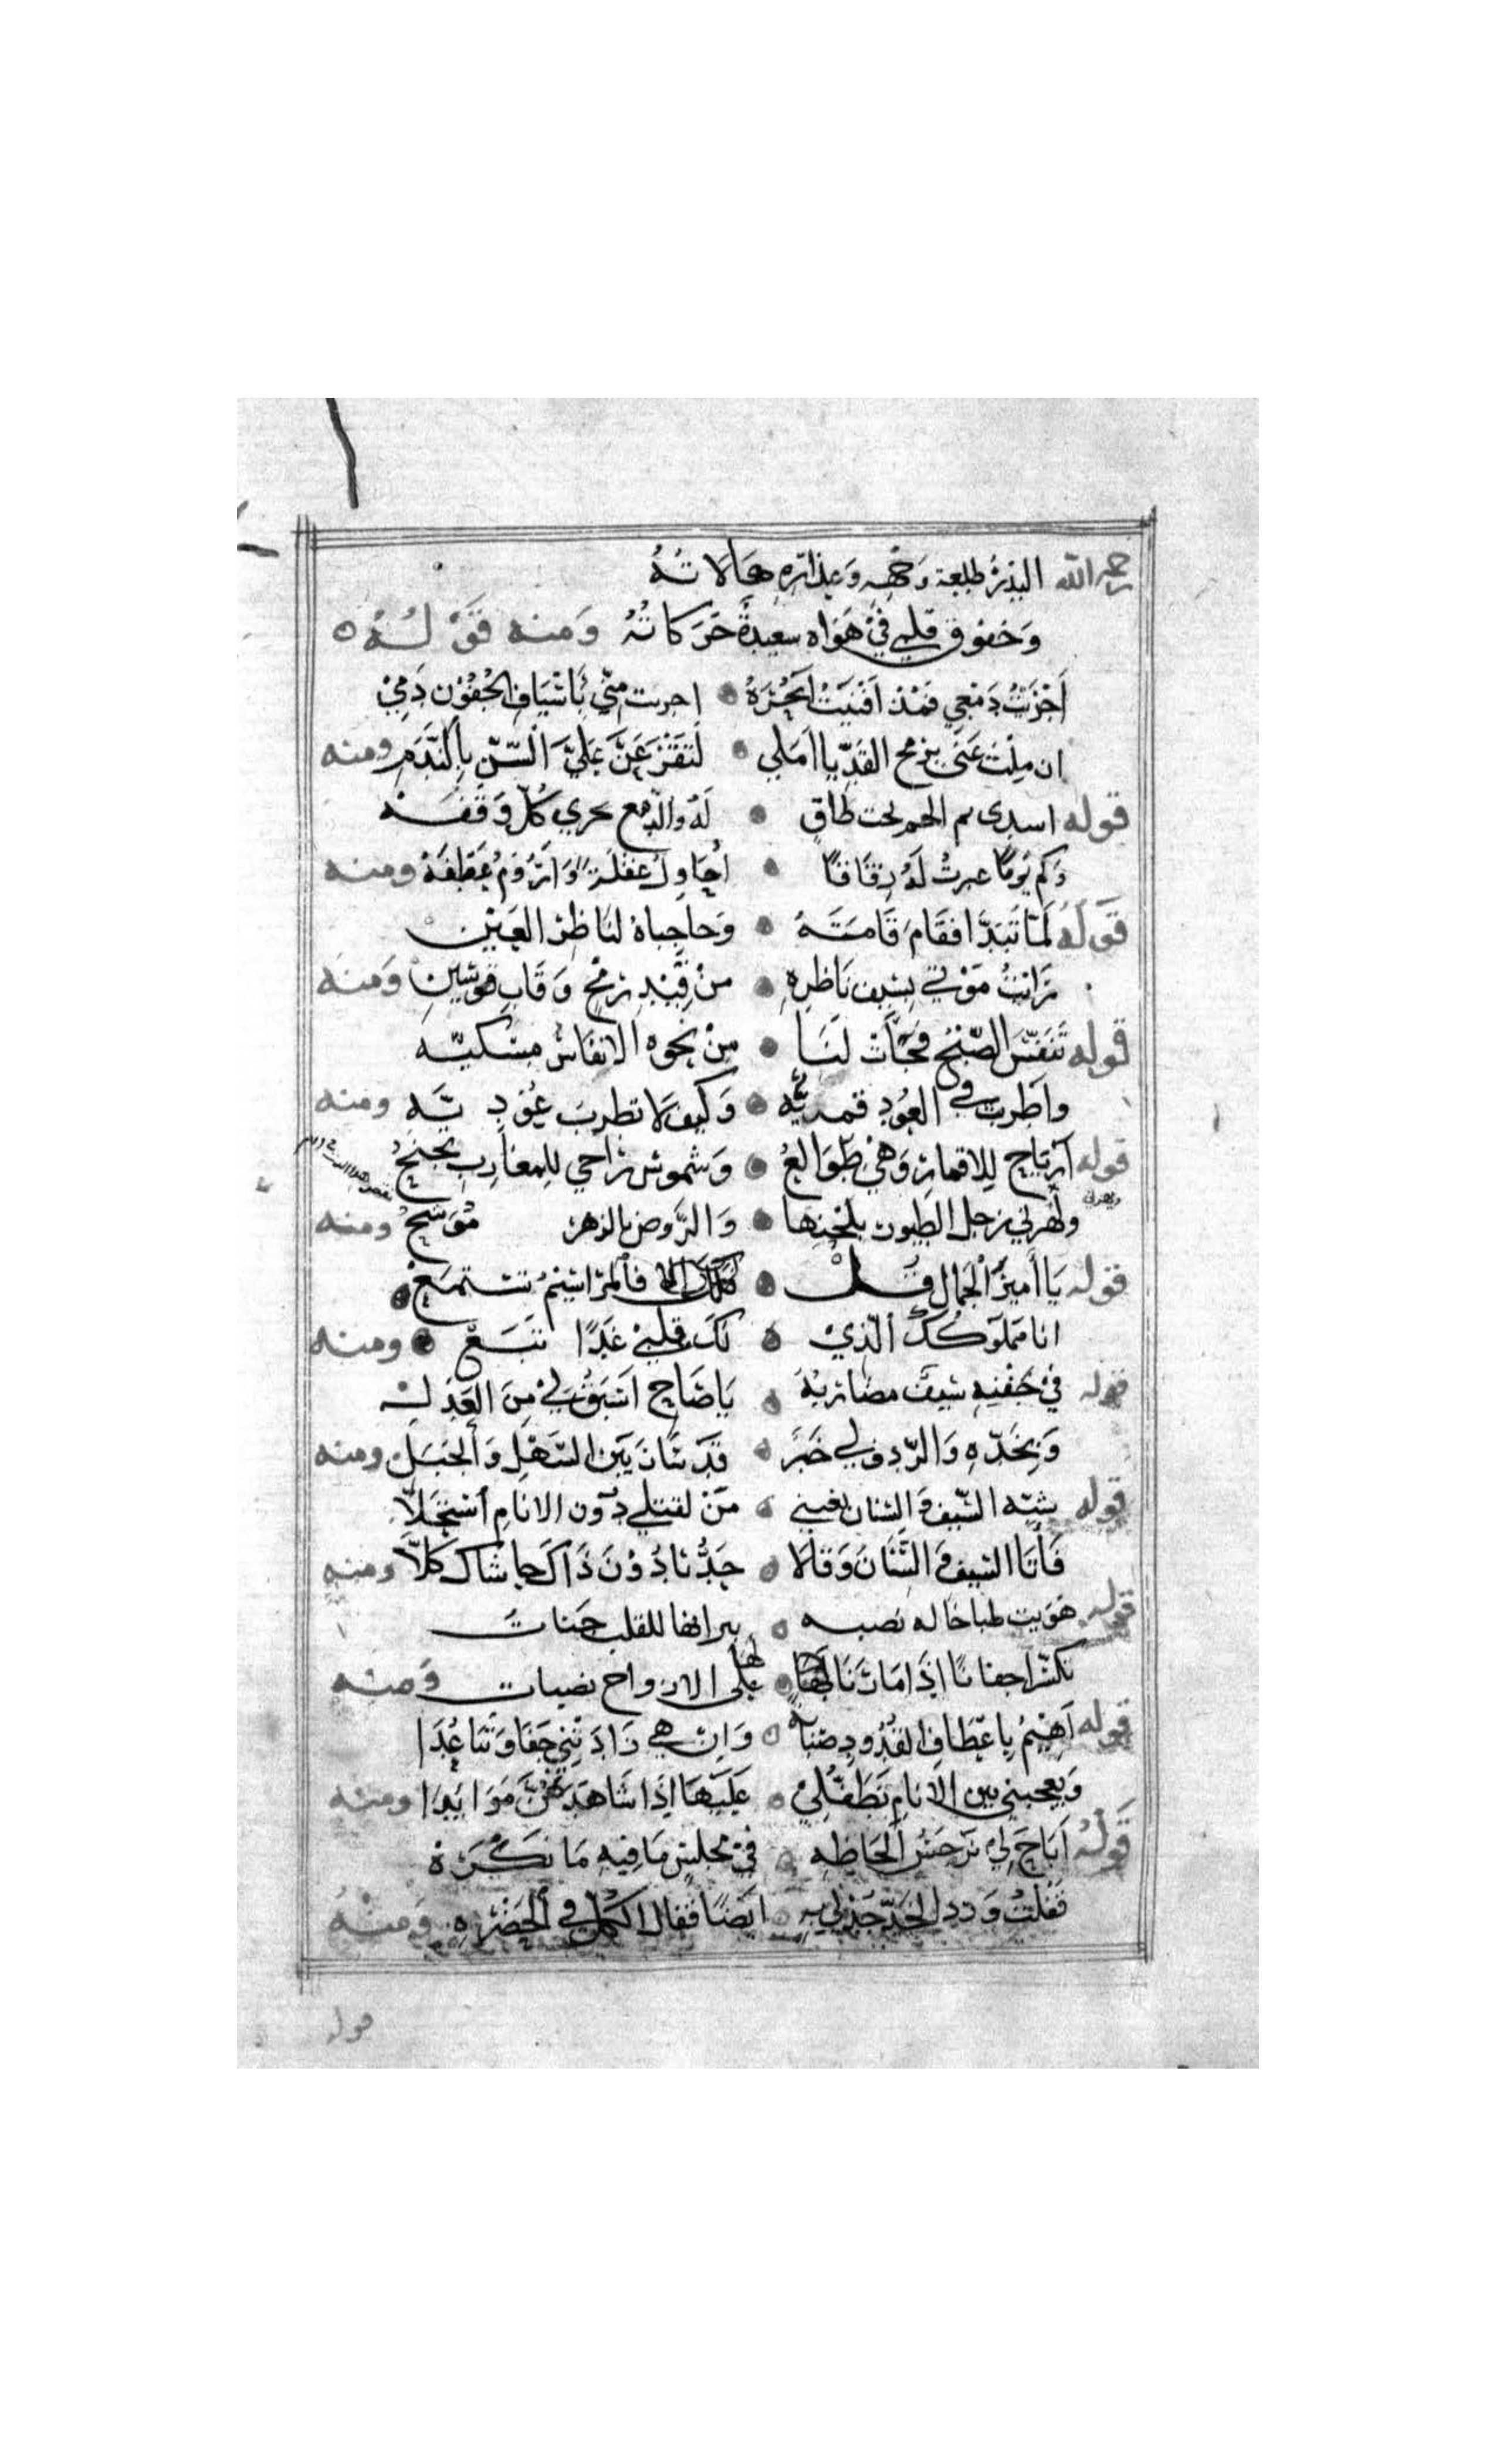 رحمه الله البدرُ طلعة وَجْهِهِ وَعِذَارِهِ هَالَاتُهُ
وَخفوق قلبي فيْ هَوَاه سعيدةٌ حَرَكَاتُهُ وَمنه قَوْلُهُ
أجْرَيْتُ دَمْعِي فَمُذْ أفْنَيْتُ أبْحُرَهُ اجريت منّي بأسْيَافِ الجُفُوْن دَمِيْ
ان مِلْتَ عَنّى برمح القدّ يا املي لَتقْرَعَنّ عَلَيَّ السّنّ بِالنَّدَمِ ومنه
قوله لَهُ والدّمع يجري كُلّ وَقفَه
وَكم يَومًا عبرتُ لَهُ زقَاقًا أحَاوِلُ غفلَةً وَأرُوْمُ عَطفَهْ ومنه
قوله لَمّا تَبَدَّا فقَامَ قَامَتَهُ وَحاجِباهُ لنَاظِرْ العَيْن
رَأيْتُ مَوْتي بسَيف نَاظِرِهِ منْ قِيْدِ رُمْحٍ وَقَابِ قوسَينِ وَمنه
قوله تَنَفّسَ الصّبْحُ فَجَآتْ لَنَا مِنْ نحوه الانفَاسُ مِسْكيّه
واطربت في العُودِ قمريَّه وَكيف لَا تطرب عُوْدِيَّه ومنه
قوله أرتاح لِلاقمارِ وَهْيَ طَوَالعُ وَشموس رَاحي لِلمغارِبِ تجنحُ
ولهزني زجل الطيور بلحنها وَالرَّوض بالزهر مُوَشّحُ ومنه
قوله يَا أمِيْرَ الجَمال قل فالمَراسِيْمُ تستمَعْ
انا مَملوكُكَ الّذيْ لَكَ قلبيْ غَدًا تبَعْ ومنه
قوله فيْ جَفْنِهِ سَيفٌ مضاربهُ يَا صَاحِ اسْبَقُ لِيْ مِنَ العَذَلِ
وَبِخَدّهِ وَالرّدف لي خبَرٌ قَد سَارَ بَيْنَ السَّهْلِ وَالجَبَلِ ومنه
قوله شبّه السّيفَ وَالسّنان بعيني مَنْ لقتلي دُون الانامِ أسْتحَلّا
فَأتَا السّيفُ وَالسّنَانُ وَقَالَا حَدُّنا دُوْنَ ذَاكَ حاشَاك كَلّا ومنه
قوله هَويت طباخا له نصبه نيرانها للقلب جَنات
نكسّر اجفانًا اذَا مَا رَنَا لها على الارواح نصبات وَمنه
قوله أهِيْمُ بِاعْطَافِ القُدُودِ صَبَابةً وَإن هي زَادَتْنِيْ جَفَا وَتَبَاعُدَا
وَيعجبني بين الانامِ تَطَفُّلِيْ عَلَيْهَا إذَا شَاهَدتُهُنَّ مَوَايدَا ومنه
قَوْلُهُ أبَاحَ لِيْ نَرْجَسُ ألحَاظِهِ فيْ مجلسٍ مَا فِيْهِ مَا نَكْرَهْ
فَقُلْتُ وَرد الخدّ جُدْ لِي بِهِ ايضًا فقال الكُلّ في الحَضْرَه وَمنه
قوله